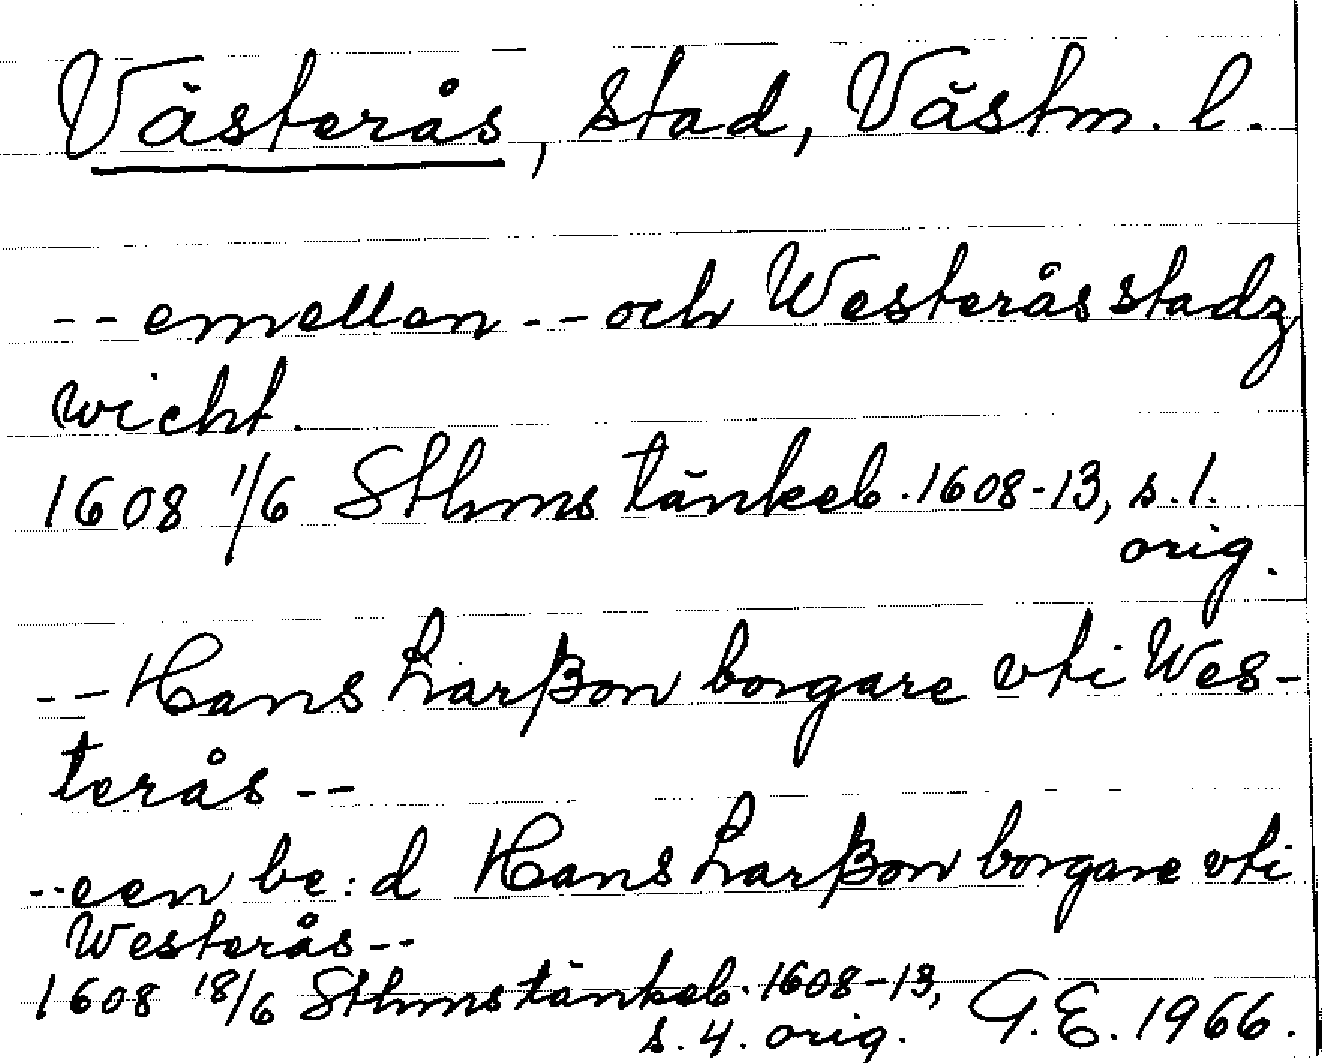 Västerås, stad, Västm. l.
-- emellan -- och Westerås stadz
wicht.
1608 1/6 Sthms tänkeb. 1608-13, s. 1.
orig.
-- Hans Larßon borgare vti Wes-
terås --
-- een be:d Hans Larßon borgare vti
Westerås --
1608 18/6 Sthms tänkeb. 1608-13,
s. 4. orig. G.E. 1966.